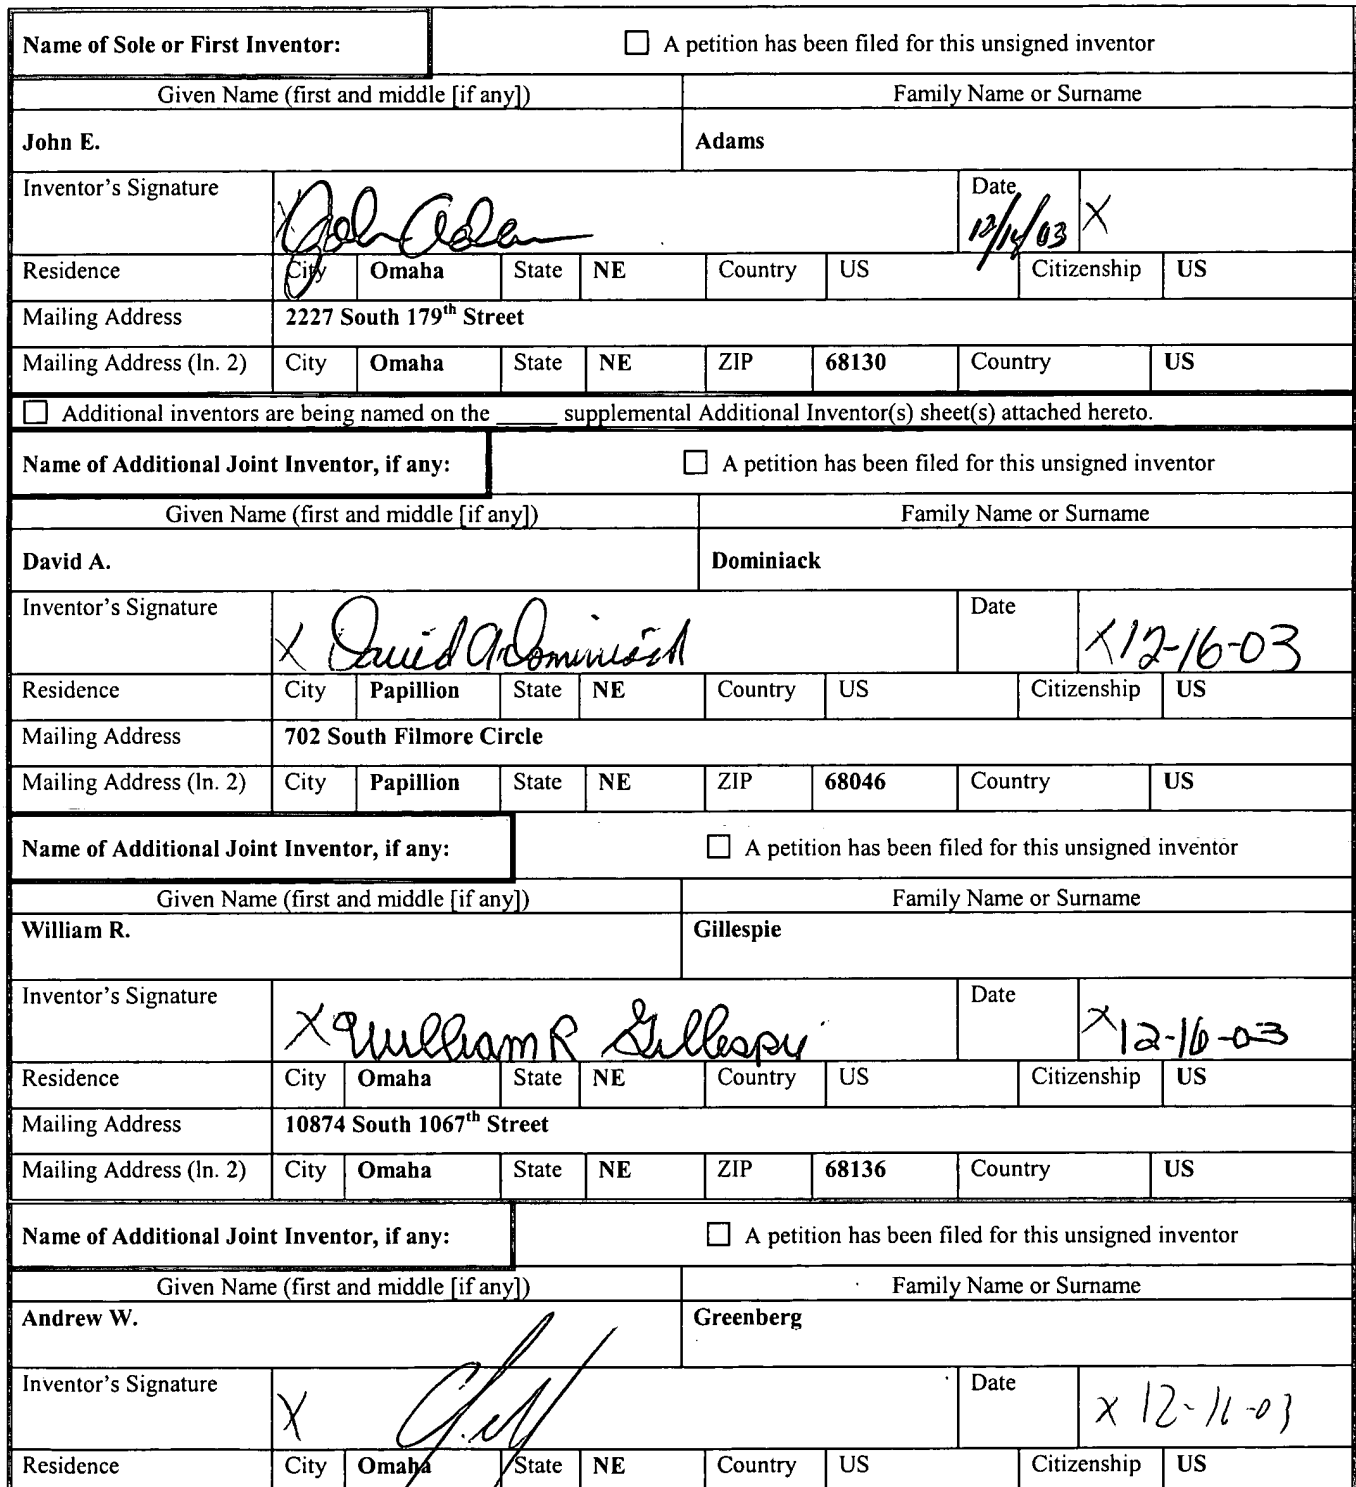 Name of Sole or First Inventor: ☐ A petition has been filed for this unsigned inventor
Given Name (first and middle [if any]) Family Name or Surname
John E. Adams
Inventor's Signature X John Adams Date 12/16/03 X
Residence City Omaha State NE Country US Citizenship US
Mailing Address 2227 South 179th Street
Mailing Address (ln. 2) City Omaha State NE ZIP 68130 Country US
☐ Additional inventors are being named on the _____ supplemental Additional Inventor(s) sheet(s) attached hereto.
Name of Additional Joint Inventor, if any: ☐ A petition has been filed for this unsigned inventor
Given Name (first and middle [if any]) Family Name or Surname
David A. Dominiack
Inventor's Signature X David A Dominiack Date X 12-16-03
Residence City Papillion State NE Country US Citizenship US
Mailing Address 702 South Filmore Circle
Mailing Address (ln. 2) City Papillion State NE ZIP 68046 Country US
Name of Additional Joint Inventor, if any: ☐ A petition has been filed for this unsigned inventor
Given Name (first and middle [if any]) Family Name or Surname
William R. Gillespie
Inventor's Signature X William R Gillespie Date X 12-16-03
Residence City Omaha State NE Country US Citizenship US
Mailing Address 10874 South 1067th Street
Mailing Address (ln. 2) City Omaha State NE ZIP 68136 Country US
Name of Additional Joint Inventor, if any: ☐ A petition has been filed for this unsigned inventor
Given Name (first and middle [if any]) Family Name or Surname
Andrew W. Greenberg
Inventor's Signature X Date X 12-16-03
Residence City Omaha State NE Country US Citizenship US